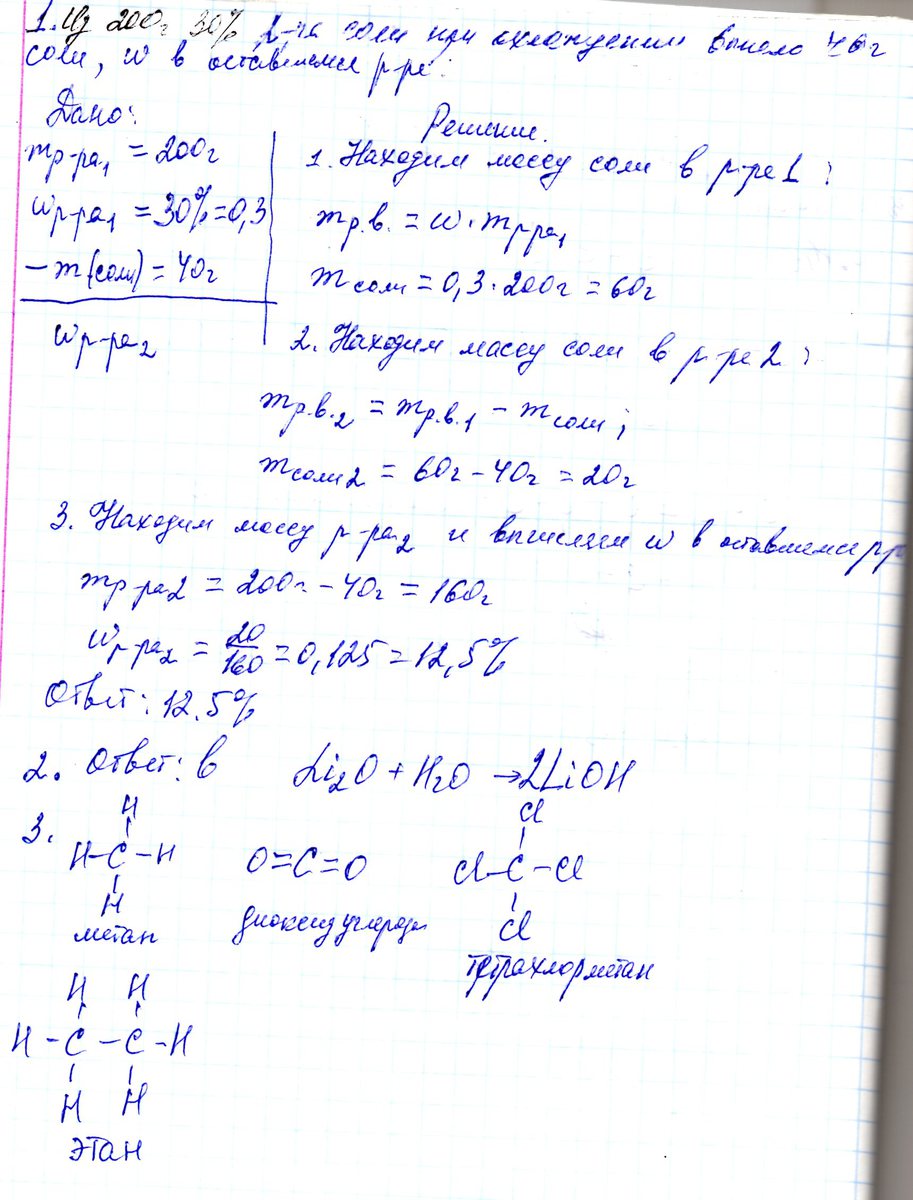 1. Из 200г 30% р-ра соли при охлаждении выпало 40г
соли, w в оставшемся р-ре:
Дано:
Решение.
mр-ра1 = 200г
wр-ра1 = 30%=0,3
– m(соли) = 40г
wр-ра2
1. Находим массу соли в р-ре 1:
mр.в. = w·mр-ра1
mсоли = 0,3·200г = 60г
2. Находим массу соли в р-ре 2:
mр.в.2 = mр.в.1 – mсоли;
mсоли2 = 60г – 40г = 20г
3. Находим массу р-ра2 и вычисляем w в оставшемся р-р
mр-ра2 = 200г – 40г = 160г
wр-ра2 = 20/160 = 0,125 = 12,5%
Ответ: 12.5%
2. Ответ: в Li2O + H2O → 2LiOH
3.
H
H–C–H
H
метан
O=C=O
диоксид углерода
Cl
Cl–C–Cl
Cl
тетрахлорметан
H H
H–C–C–H
H H
этан